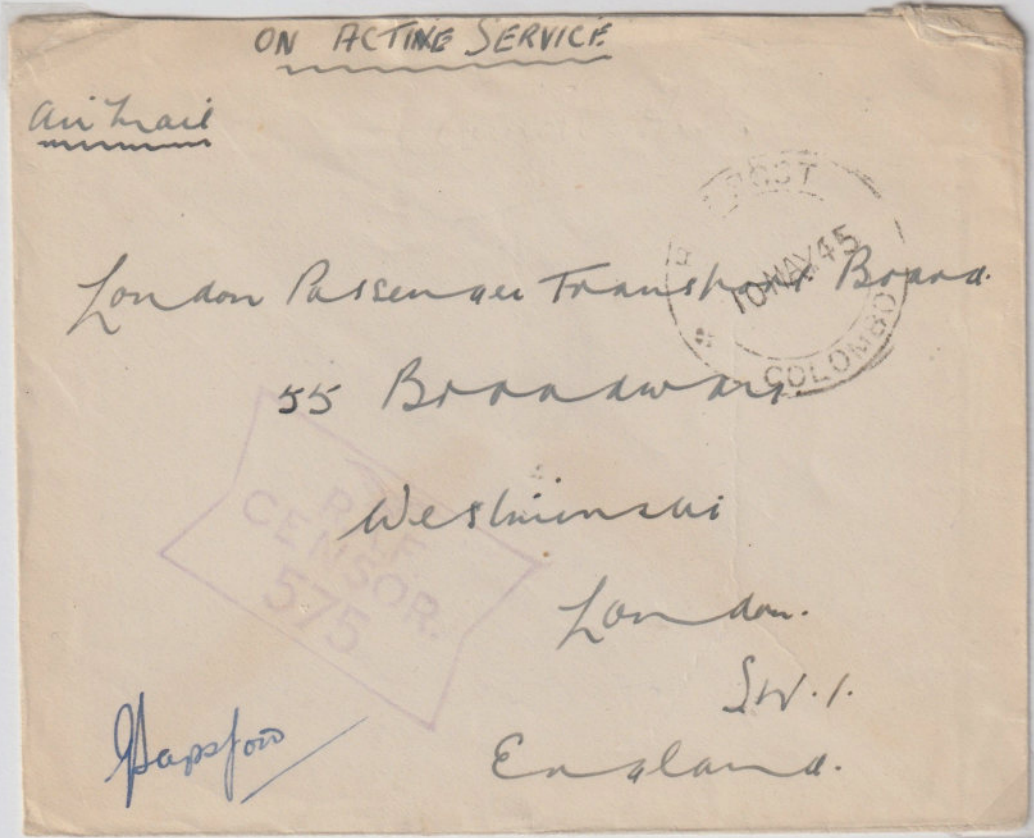 ON ACTIVE SERVICE
Air Mail
POST
10 MAY 45
COLOMBO
London Passenger Transport Board.
55 Broadway.
Westminster
London.
S.W.1.
England.
RAF
CENSOR.
575